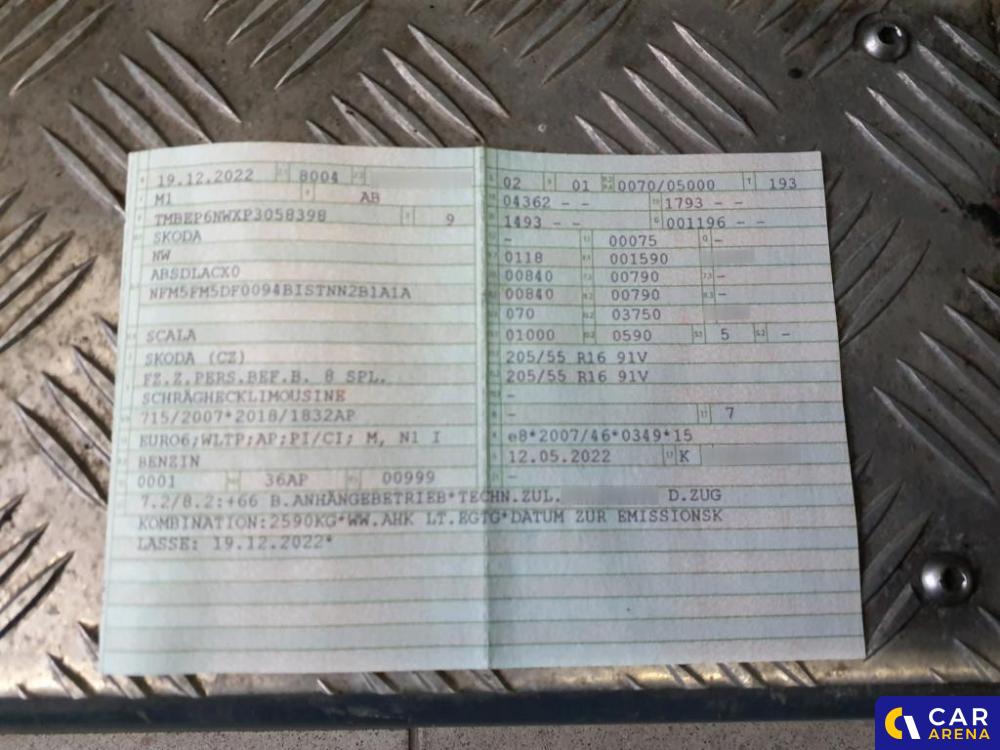 19.12.2022 8004
M1 AB
TMBEP6NWXP3058398 9
SKODA
NW
ABSDLACX0
NFM5FM5DF0094BISTNN2B1A1A
SCALA
SKODA (CZ)
FZ.Z.PERS.BEF.B. 8 SPL.
SCHRÄGHECKLIMOUSINE
715/2007*2018/1832AP
EURO6;WLTP;AP;PI/CI; M, N1 I
BENZIN
0001 36AP 00999
02 01 0070/05000 193
04362 - - 1793 - -
1493 - - 001196 - -
- 00075 -
0118 001590
00840 00790 -
00840 00790 -
070 03750
01000 0590 5 -
205/55 R16 91V
205/55 R16 91V
-
- 7
e8*2007/46*0349*15
12.05.2022 K
-
7.2/8.2:+66 B.ANHÄNGEBETRIEB*TECHN.ZUL. D.ZUG
KOMBINATION:2590KG*WW.AHK LT.EGTG*DATUM ZUR EMISSIONSK
LASSE: 19.12.2022*
CAR
ARENA